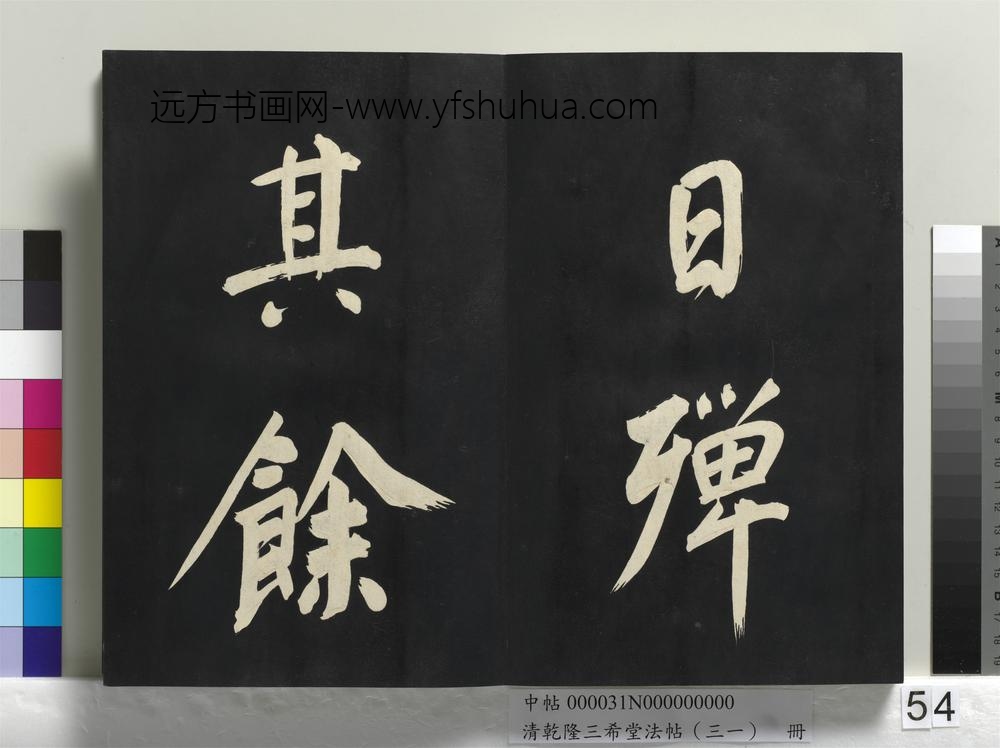 远方书画网-www.yfshuhua.com
日殫
其餘
中帖 000031N000000000
清乾隆三希堂法帖（三一） 冊
54